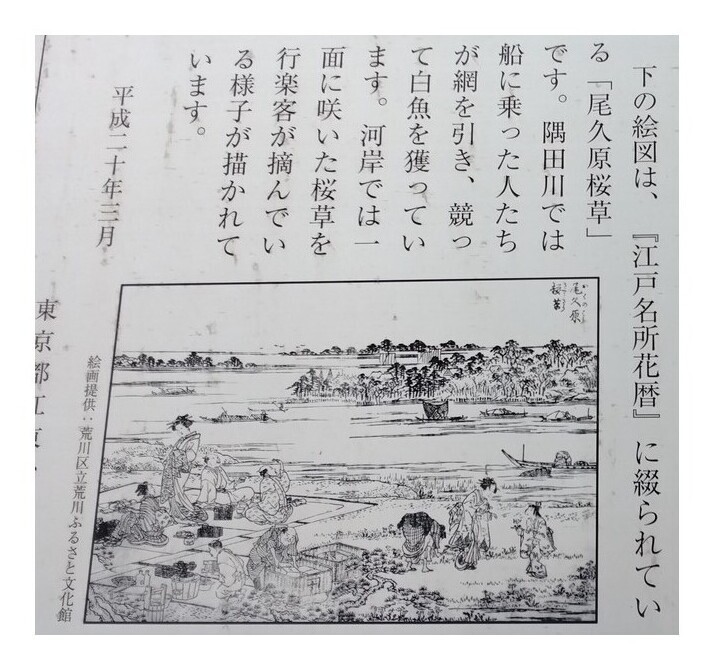 下の絵図は、『江戸名所花暦』に綴られてい
る「尾久原桜草」
です。隅田川では
船に乗った人たち
が網を引き、競っ
て白魚を獲ってい
ます。河岸では一
面に咲いた桜草を
行楽客が摘んでい
る様子が描かれて
います。
平成二十年三月
東京都江東
尾久原
桜草
絵画提供：荒川区立荒川ふるさと文化館